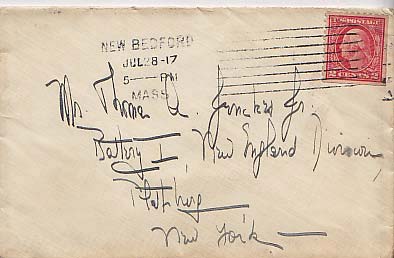 NEW BEDFORD
JUL 28-17
5 — PM
MASS.
U.S. POSTAGE
2 CENTS 2
Mr. Thomas A. Jr.
Battery I, New England Division,
Plattsburg
New York